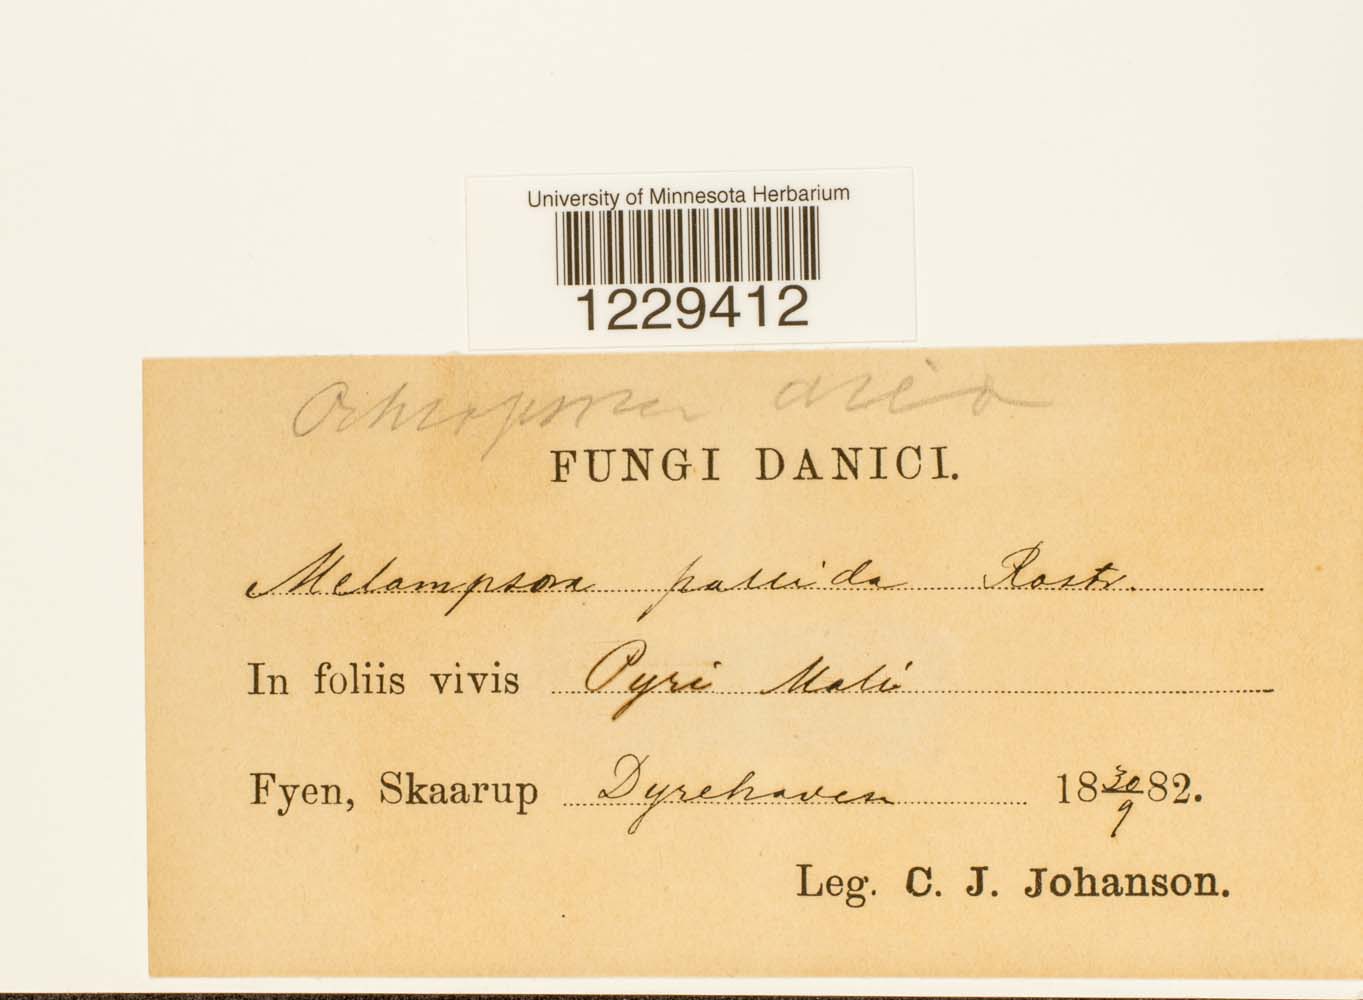 University of Minnesota Herbarium
1229412
Ochropsora ariæ
FUNGI DANICI.
Melampsora pallida Rostr.
In foliis vivis Pyri Mali
Fyen, Skaarup Dyrehaven 18 30/9 82.
Leg. C. J. Johanson.